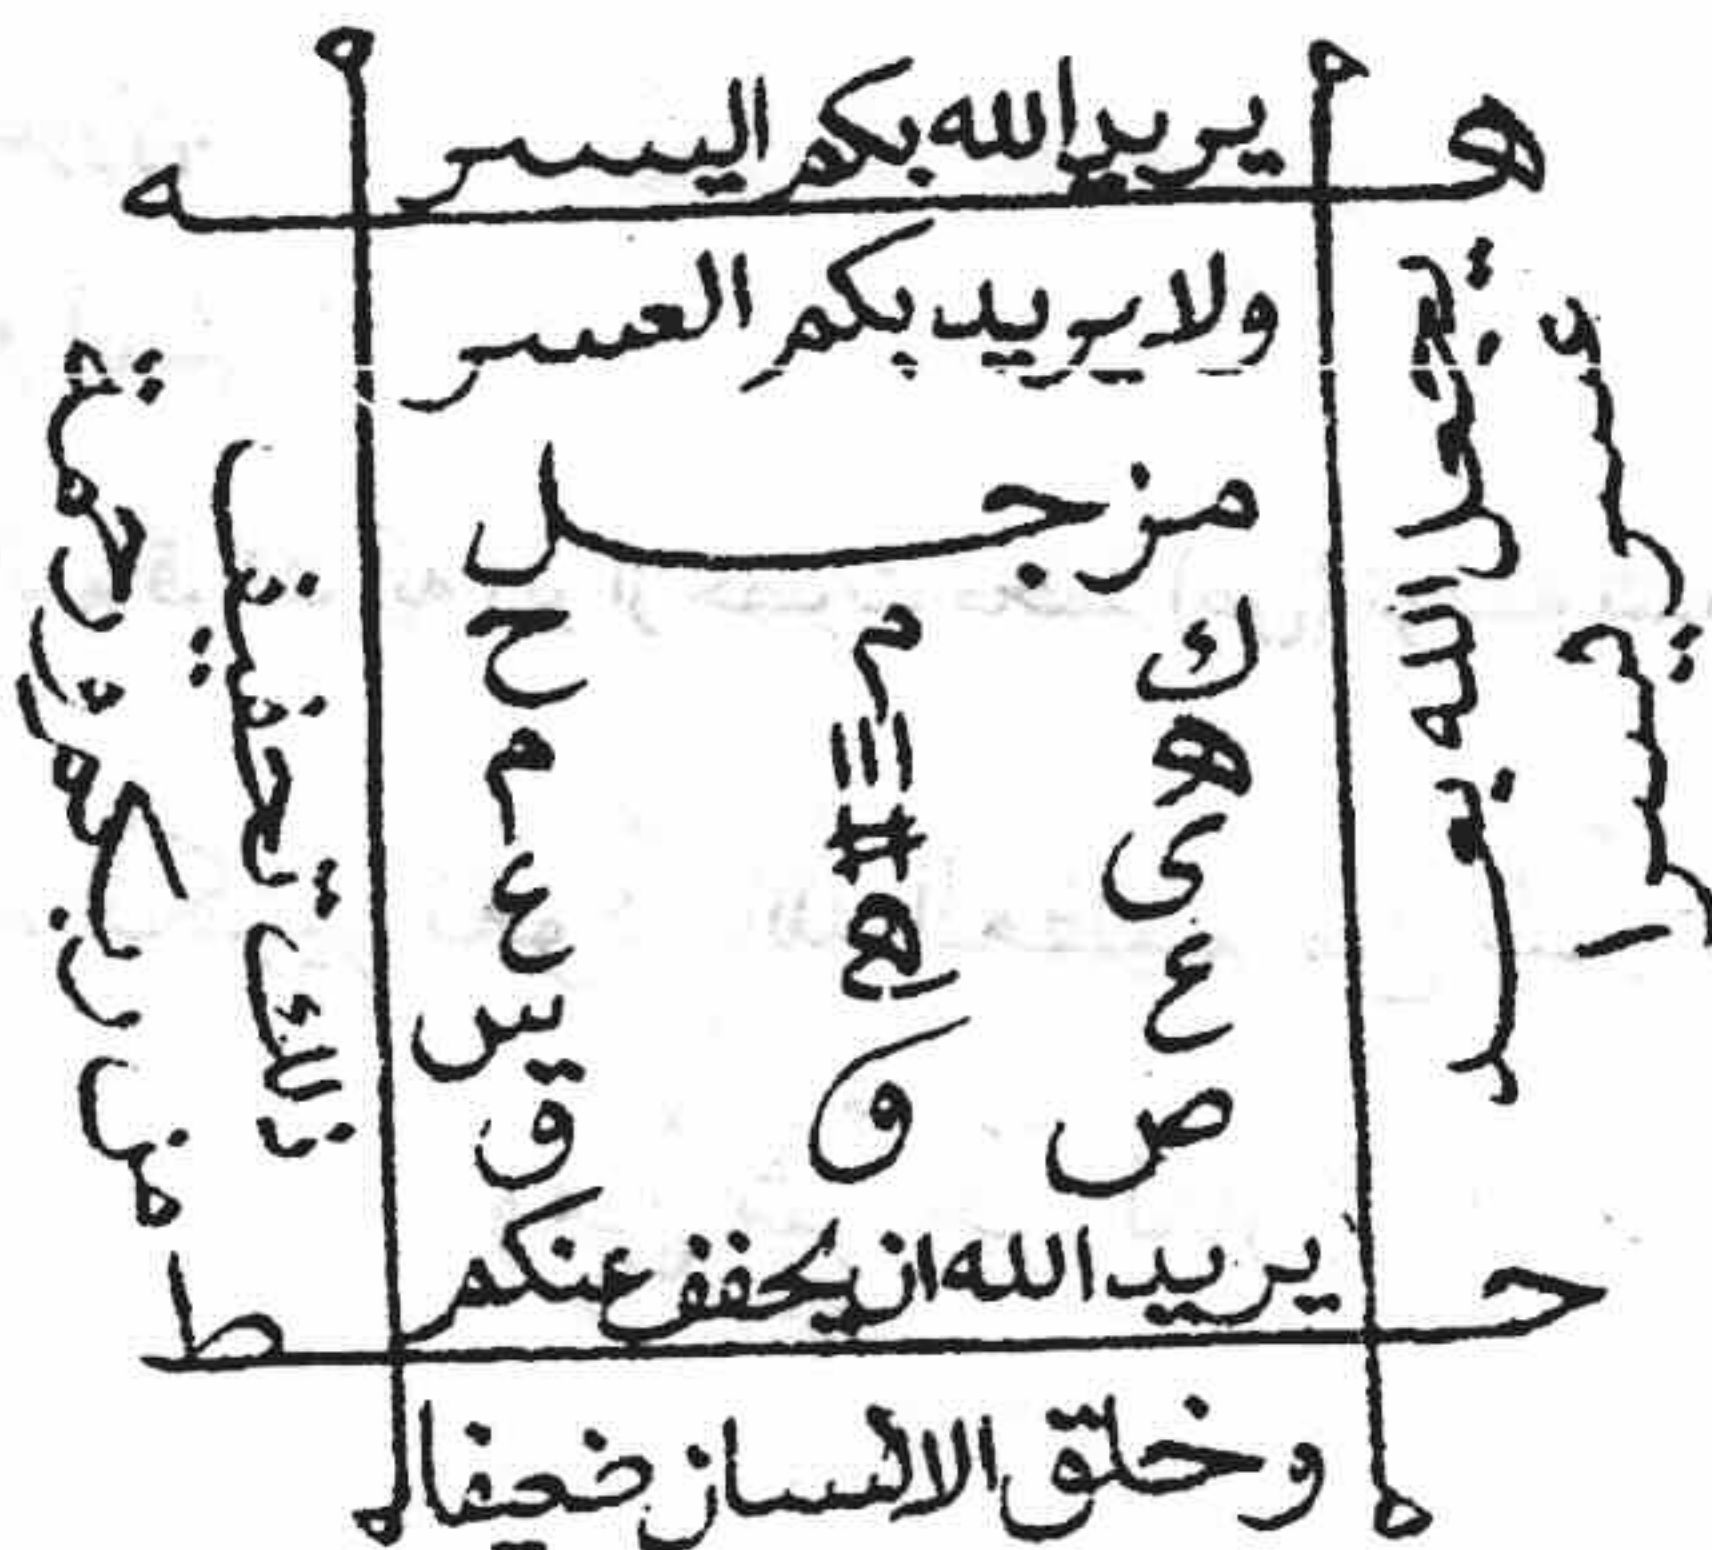 ه
ه
يريد الله بكم اليسر
ه
ه
ولا يريد بكم العسر
مزجل ل
ك م ح
ه ااا م
ى # ع
ع ه س
ص و ق
يريد الله ان يخفف عنكم
ح
ط
وخلق الانسان ضعيفا
ه
ه
يجعل الله بعد
عسر يسرا
ذلك تخفيف
من ربكم ورحمة